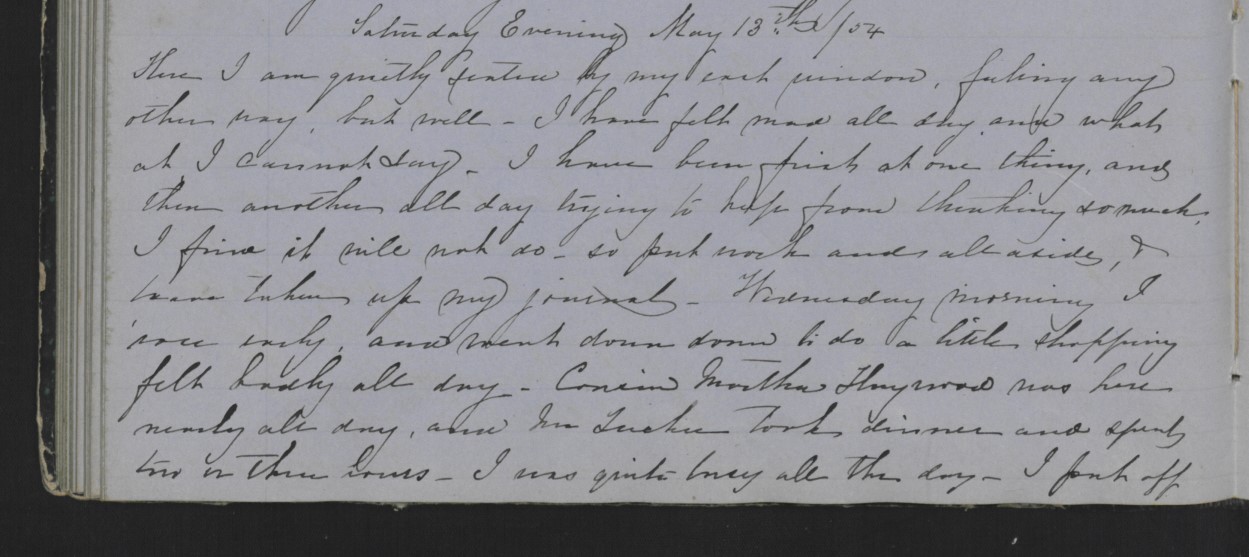 Saturday Evening May 13th /54
Here I am quietly seated by my east window, feeling any
other way, but well - I have felt mad all day and what
at I cannot say - I have been first at one thing, and
then another all day trying to keep from thinking so much,
I find it will not do - so put work and all aside, &
have taken up my journal - Wednesday morning I
rose early, and went down town to do a little shopping
felt badly all day - Cousin Martha Haywood was here
nearly all day, and Mr Tucker took dinner and spent
two or three hours - I was quite busy all the day - I put off